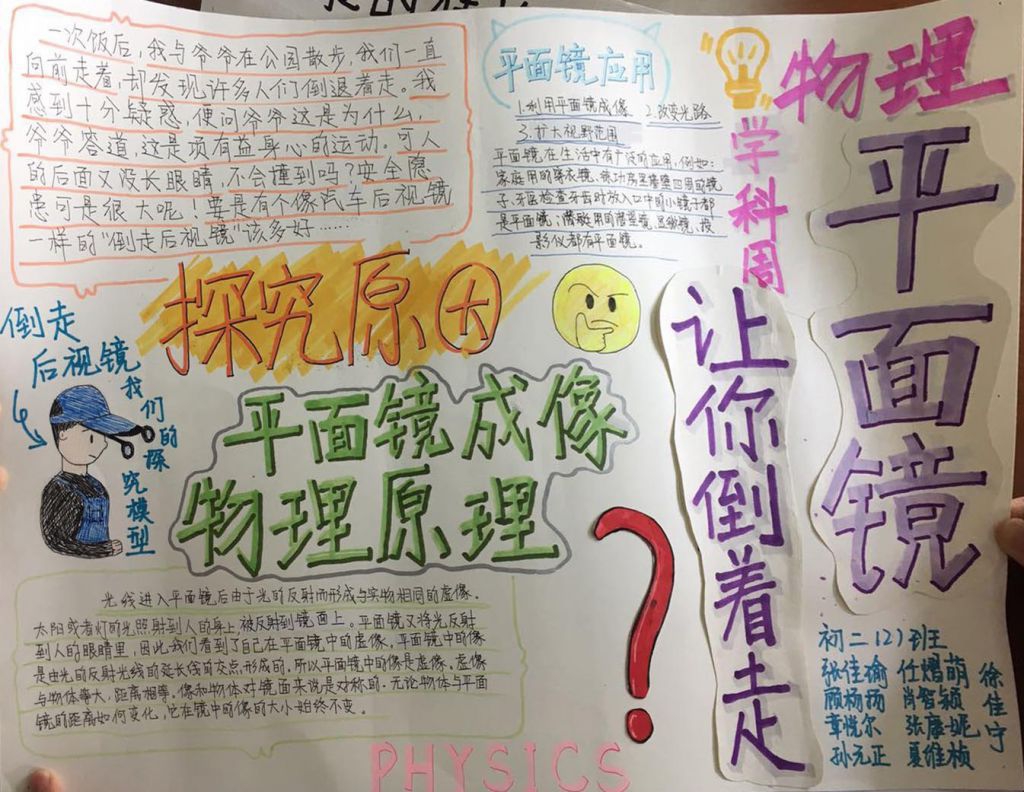 一次饭后，我与爷爷在公园散步，我们一直
向前走着，却发现许多人们倒退着走。我
感到十分疑惑，便问爷爷这是为什么，
爷爷答道，这是项有益身心的运动。可人
的后面又没长眼睛，不会撞到吗？安全隐
患可是很大呢！要是有个像汽车后视镜
一样的“倒走后视镜”该多好……
平面镜应用
1.利用平面镜成像 2.改变光路
3.扩大视野范围
平面镜在生活中有广泛的应用，例如：
家庭用的穿衣镜、练功房里墙壁四周的镜
子、牙医检查牙齿时放入口中的小镜子都
是平面镜；潜艇用的潜望镜、显微镜、投
影仪都有平面镜。
物理
学科周
平面镜
让你倒着走
探究原因
倒走
后视镜
我们的探究模型
平面镜成像
物理原理
?
光线进入平面镜后由于光的反射而形成与实物相同的虚像。
太阳或者灯的光照射到人的身上，被反射到镜面上。平面镜又将光反射
到人的眼睛里，因此我们看到了自己在平面镜中的虚像。平面镜中的像
是由光的反射光线的延长线的交点形成的。所以平面镜中的像是虚像。虚像
与物体等大，距离相等。像和物体对镜面来说是对称的。无论物体与平面
镜的距离如何变化，它在镜中的像的大小始终不变。
PHYSICS
初二（2）班
张佳瑜 任熠萌
顾杨扬 肖智颖
章悦尔 张康妮
孙元正 夏维桢
徐佳宁